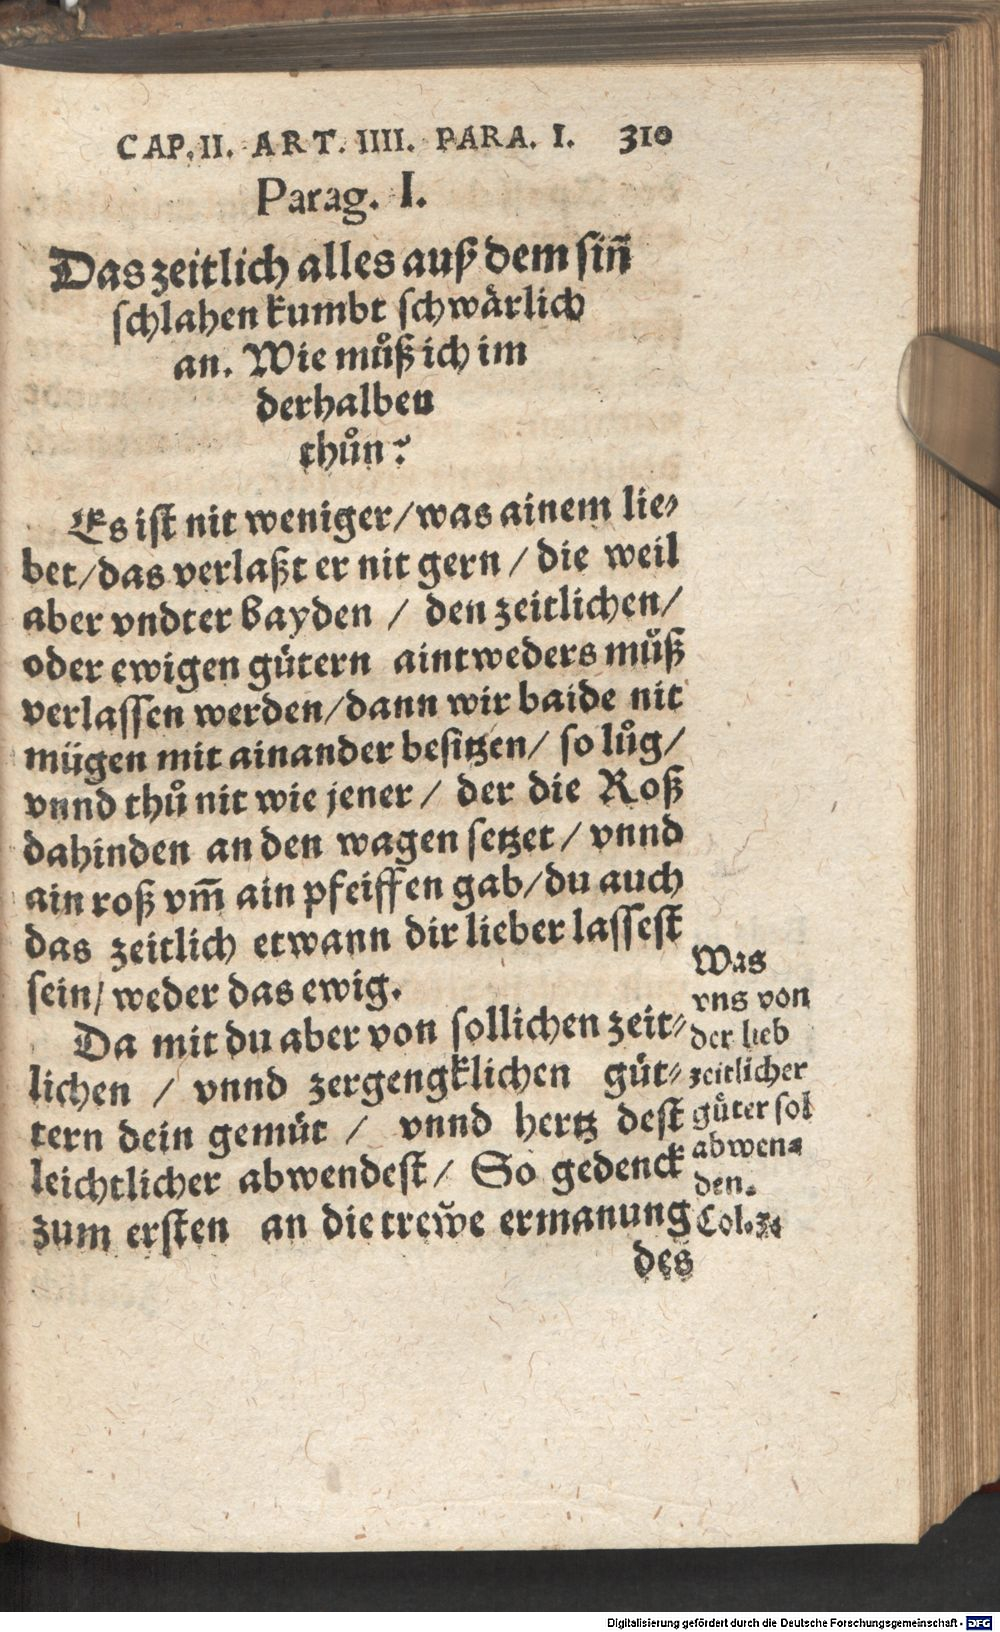 CAP. II. ART. IIII. PARA. I. 310
Parag. I.
Das zeitlich alles auß dem siñ
schlahen kumbt schwaͤrlich
an. Wie muͦß ich im
derhalben
thuͦn?
Es ist nit weniger / was ainem lie⸗
bet / das verlaßt er nit gern / die weil
aber vndter bayden / den zeitlichen /
oder ewigen guͤtern aintweders muͦß
verlassen werden / dann wir baide nit
mügen mit ainander besitzen / so luͦg /
vnnd thuͦ nit wie jener / der die Roß
dahinden an den wagen setzet / vnnd
ain roß vm̃ ain pfeiffen gab / du auch
das zeitlich etwann dir lieber lassest
sein / weder das ewig.
Da mit du aber von sollichen zeit⸗
lichen / vnnd zergengklichen guͤt⸗
tern dein gemuͤt / vnnd hertz dest
leichtlicher abwendest / So gedenck
zum ersten an die trew̃e ermanung
des
Was
vns von
der lieb
zeitlicher
guͤter sol
abwen⸗
den.
Col. 3.
Digitalisierung gefördert durch die Deutsche Forschungsgemeinschaft - DFG